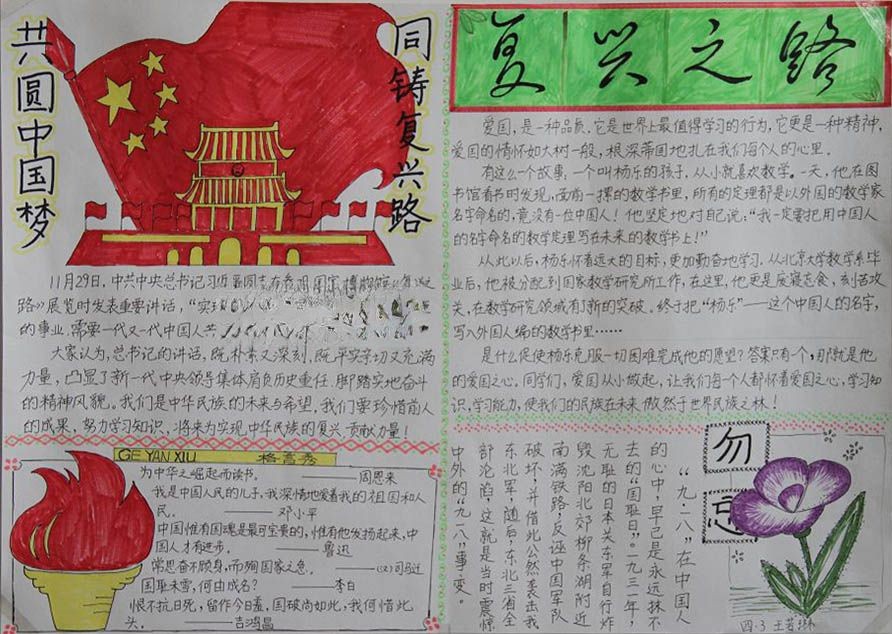 共圆中国梦
同铸复兴路
11月29日,中共中央总书记习近平同志在参观国家博物馆《复兴之
路》展览时发表重要讲话,“实现
的事业,需要一代又一代中国人共
大家认为,总书记的讲话,既朴素又深刻,既平实亲切又充满
力量,凸显了新一代中央领导集体肩负历史重任.脚踏实地奋斗
的精神风貌。我们是中华民族的未来与希望,我们要珍惜前人
的成果,努力学习知识,将来为实现中华民族的复兴,贡献力量!
GE YAN XIU 格言秀
为中华之崛起而读书。——周恩来
我是中国人民的儿子,我深情地爱着我的祖国和人
民。——邓小平
中国惟有国魂是最可宝贵的,惟有他发扬起来,中
国人才有进步。——鲁迅
常思奋不顾身,而殉国家之急。——(汉)司马迁
国耻未雪,何由成名?——李白
恨不抗日死,留作今日羞,国破尚如此,我何惜此
头。——吉鸿昌
复兴之路
爱国,是一种品质,它是世界上最值得学习的行为,它更是一种精神,
爱国的情怀如大树一般,根深蒂固地扎在我们每个人的心里。
有这么一个故事:一个叫杨乐的孩子,从小就喜欢数学。一天,他在图
书馆看书时发现,面前一摞的数学书里,所有的定理都是以外国的数学家
名字命名的,竟没有一位中国人!他坚定地对自己说:“我一定要把用中国人
的名字命名的数学定理写在未来的数学书上!”
从此以后,杨乐怀着远大的目标,更加勤奋地学习.从北京大学数学系毕
业后,他被分配到国家数学研究所工作,在这里,他更是废寝忘食,刻苦攻
关,在数学研究领域有了新的突破。终于把“杨乐”——这个中国人的名字,
写入外国人编的数学书里……
是什么促使杨乐克服一切困难完成他的愿望?答案只有一个,那就是他
的爱国之心。同学们,爱国从小做起,让我们每一个人都怀着爱国之心,学习知
识,学习能力,使我们的民族在未来傲然于世界民族之林!
勿忘
“九·一八”在中国人
的心中,早已是永远抹不
去的“国耻日”。一九三一年,
无耻的日本关东军自行炸
毁沈阳北郊柳条湖附近
南满铁路,反诬中国军队
破坏,并借此公然袭击我
东北军,随后,东北三省全
部沦陷,这就是当时震惊
中外的“九一八”事变。
四.3 王若琳